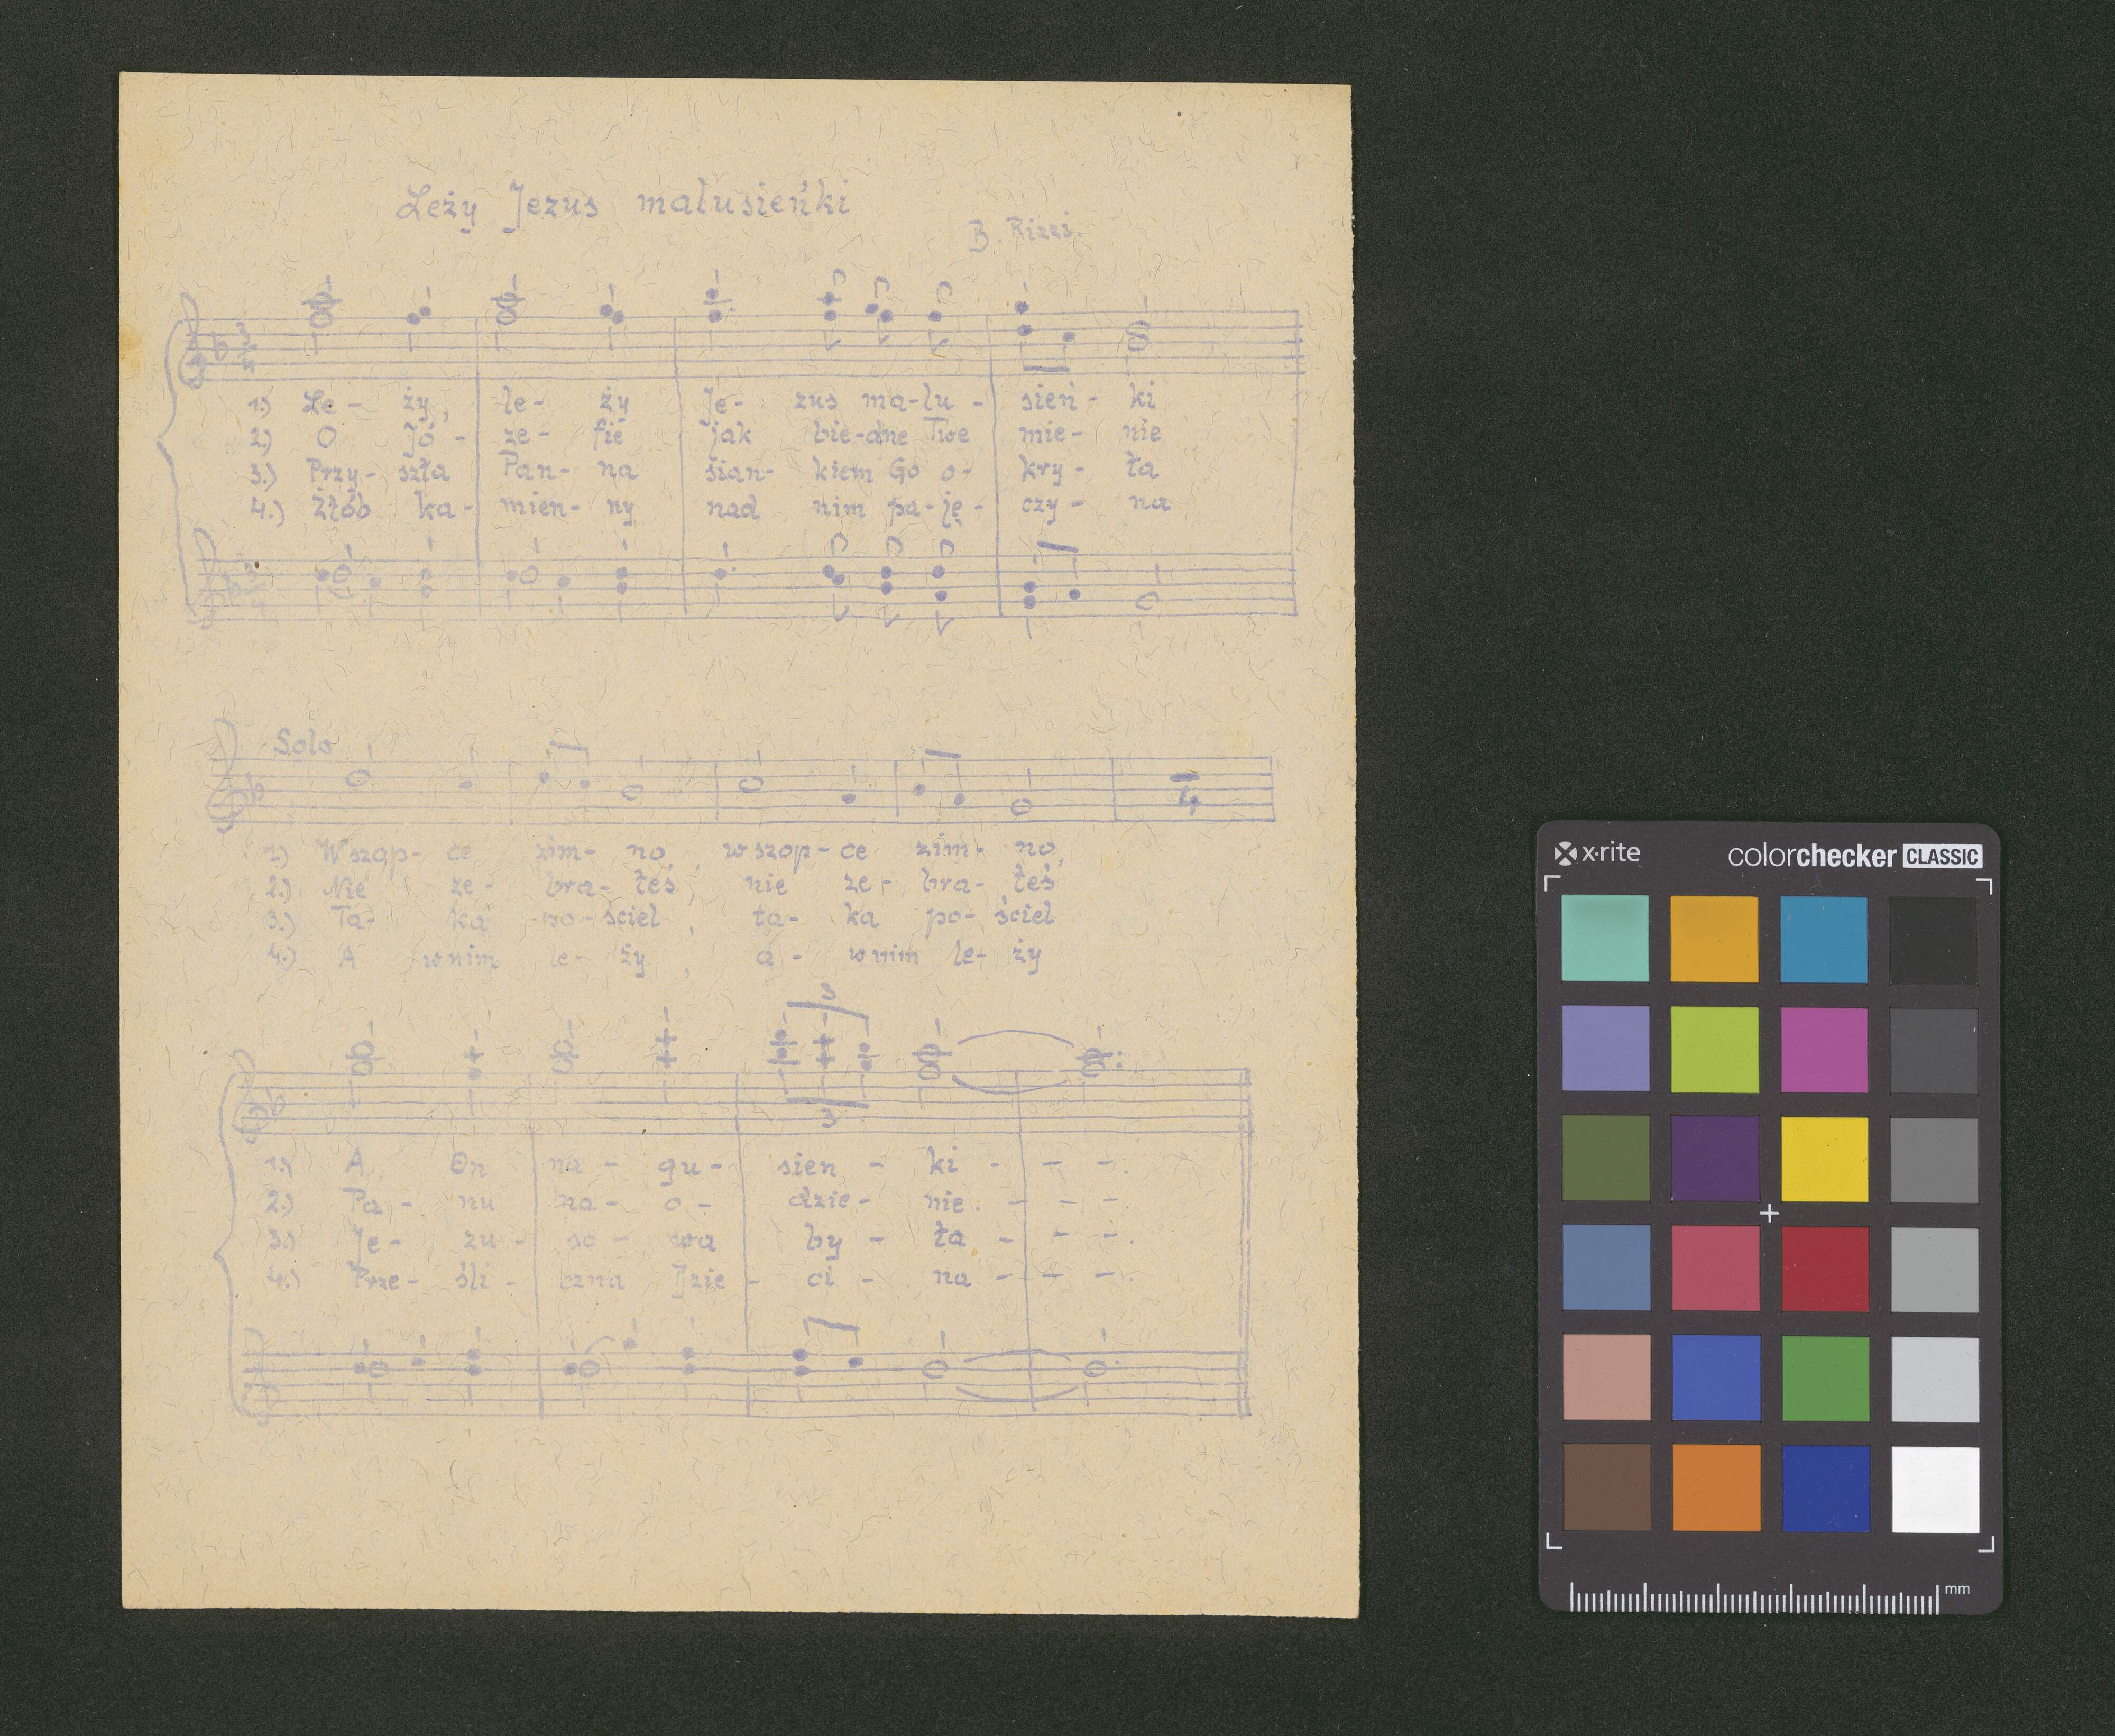 Leży Jezus malusieńki
B. Rizzi.
1.) Le - ży, le - ży Je - zus ma-lu - sień - ki
2.) O Jó - ze - fie jak bie-dne Twe mie - nie
3.) Przy- szła Pan- na sian- kiem Go o- kry - ła
4.) Żłób ka- mien- ny nad nim pa-ję - czy - na
Solo
4
1.) W szop- ce zim- no, w szop - ce zim- no,
2.) Nie ze - bra- łeś, nie ze - bra- łeś
3.) Ta- ka po- ściel, ta- ka po- ściel
4.) A w nim le- ży, a - w nim le- ży
3
3
1.) A On na - gu - sien - ki - - -.
2.) Pa - nu na - o - dzie - nie. - - -.
3.) Je - zu - so - wa by - ła - - -.
4.) Prze - śli - czna Dzie - ci - na - - -.
x·rite colorchecker CLASSIC
mm